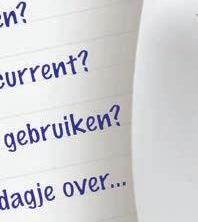 en?
current?
gebruiken?
dagje over...